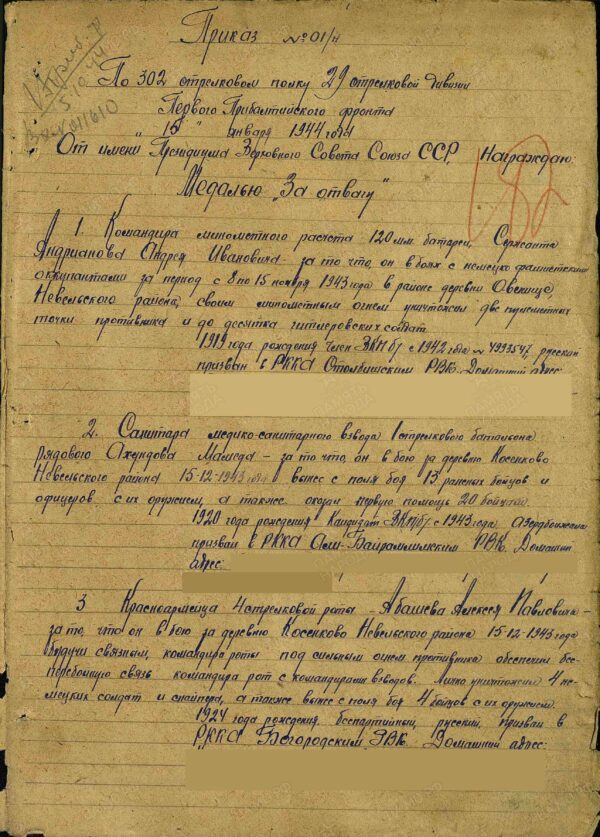 Приказ №01/н
5.10.44
По 302 стрелковому полку 29 стрелковой дивизии
Первого Прибалтийского фронта
"15" января 1944 года
От имени Президиума Верховного Совета Союза ССР, Награждаю:
Медалью "За отвагу"
1. Командира минометного расчета 120мм. батареи, Сержанта
Андрианова Андрея Ивановича - за то что, он в боях с немецко фашистскими
оккупантами за период с 8 по 15 ноября 1943 года в районе деревни
Невельского района, своим минометным огнем уничтожил две пулеметных
точки противника и до десятка гитлеровских солдат.
1919 года рождения член ВКП/б/ с 1942 года № 4993547, русский
призван в РККА РВК. Домашний адрес
2. Санитара медико-санитарного взвода 1 стрелкового батальона
рядового Ахундова Мамеда - за то что, он в бою за деревню Косенково
Невельского района 15-12-1943 года вынес с поля боя 13 раненых бойцов и
офицеров с их оружием, а также оказал первую помощь 20 бойцам.
1920 года рождения Кандидат ВКП/б/ с 1943 года. Азербайжанин
призван в РККА Али-Байрамлинским РВК. Домашний
адрес:
3 Красноармейца 4 стрелковой роты - Абашева Алексея Павловича -
за то, что он в бою за деревню Косенково Невельского района 15-12-1943 года
будучи связным, командира роты под сильным огнем противника обеспечил бес-
перебойную связь командира рот с командирами взводов. Лично уничтожил 4 не-
мецких солдат и снайпера, а также вынес с поля боя 4 бойцов с их оружием.
1924 года рождения, беспартийный, русский, призван в
РККА Богородским РВК. Домашний адрес: